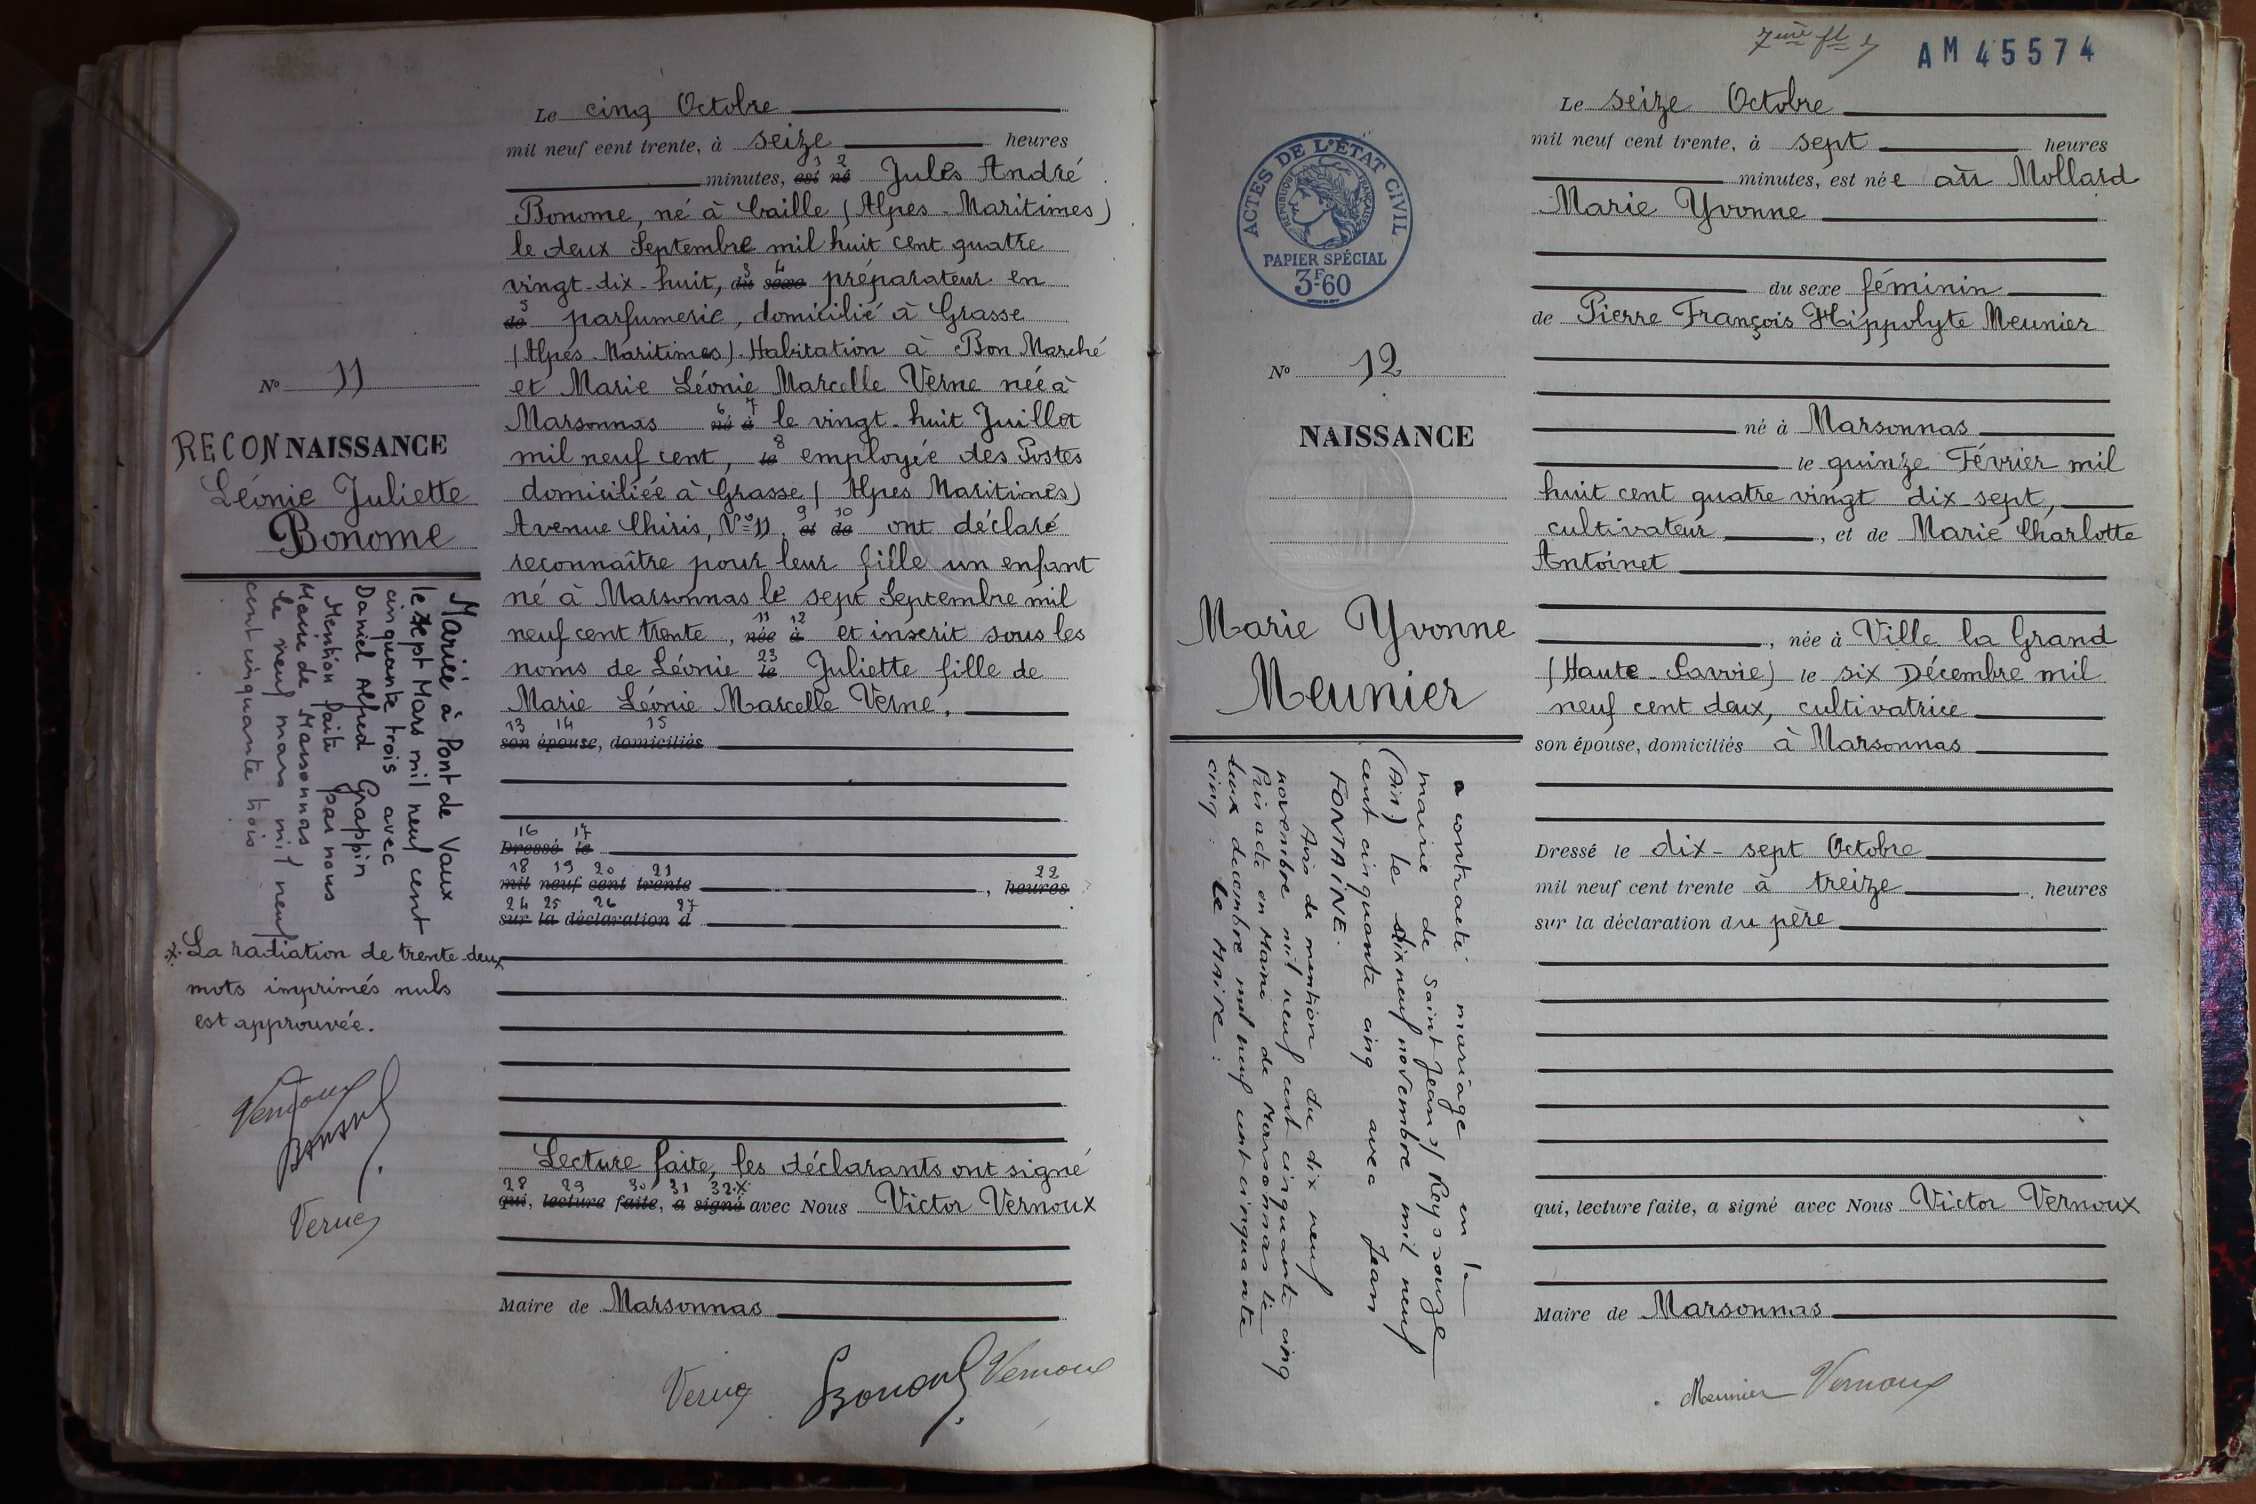 Le cinq Octobre
mil neuf cent trente, à seize heures
minutes, est né Jules André
Bonome, né à Caille (Alpes-Maritimes)
le deux Septembre mil huit cent quatre
vingt-dix-huit, du sexe préparateur en
de parfumerie, domicilié à Grasse
(Alpes-Maritimes). Habitation à Bon Marché
et Marie Léonie Marcelle Verne née à
Marsonnas né à le vingt-huit Juillet
mil neuf cent, le employée des Postes
domiciliée à Grasse (Alpes Maritimes)
Avenue Chiris, N° 11. et de ont déclaré
reconnaître pour leur fille un enfant
né à Marsonnas le sept Septembre mil
neuf cent trente, née à et inscrit sous les
noms de Léonie le Juliette fille de
Marie Léonie Marcelle Verne.
son épouse, domiciliés
Dressé le
mil neuf cent trente, heures
sur la déclaration d
Lecture faite, les déclarants ont signé
qui, lecture faite, a signé avec Nous Victor Vernoux
Maire de Marsonnas
Verne Bonome Vernoux
N° 11
RECONNAISSANCE
Léonie Juliette
Bonome
Mariée à Pont de Vaux
le sept Mars mil neuf cent
cinquante trois avec
Daniel Alfred Grappin
Mention faite par nous
Maire de Marsonnas
le neuf mars mil neuf
cent cinquante trois
x. La radiation de trente-deux
mots imprimés nuls
est approuvée.
Vernoux
Bonome
Verne
7ème fl
AM 45574
ACTES DE L'ÉTAT CIVIL
RÉPUBLIQUE FRANÇAISE
PAPIER SPÉCIAL
3F60
N° 12
NAISSANCE
Marie Yvonne
Meunier
a contracté mariage en la
mairie de Saint Jean s/ Reyssouze
(Ain) le dix neuf novembre mil neuf
cent cinquante cinq avec Jean
FONTAINE.
Avis de mention du dix neuf
novembre mil neuf cent cinquante cinq
Pris acte en Mairie de Marsonnas le
deux décembre mil neuf cent cinquante
cinq. Le MAIRE:
Le seize Octobre
mil neuf cent trente, à sept heures
minutes, est née au Mollard
Marie Yvonne
du sexe féminin
de Pierre François Hippolyte Meunier
né à Marsonnas
le quinze Février mil
huit cent quatre vingt dix sept,
cultivateur, et de Marie Charlotte
Antoinet
, née à Ville la Grand
(Haute-Savoie) le six Décembre mil
neuf cent deux, cultivatrice
son épouse, domiciliés à Marsonnas
Dressé le dix-sept Octobre
mil neuf cent trente à treize heures
sur la déclaration du père
qui, lecture faite, a signé avec Nous Victor Vernoux
Maire de Marsonnas
Meunier Vernoux